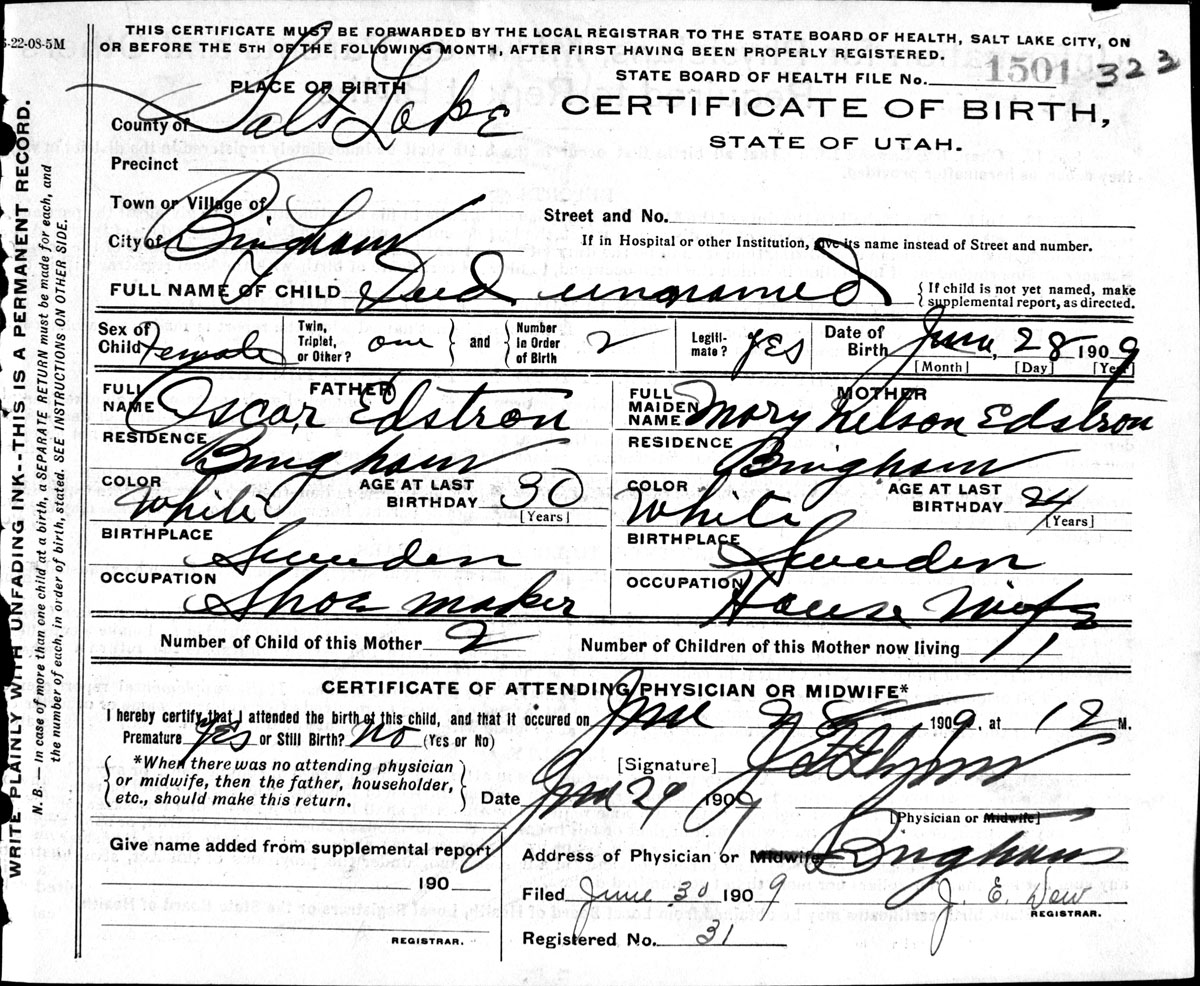 3-22-08-5M
THIS CERTIFICATE MUST BE FORWARDED BY THE LOCAL REGISTRAR TO THE STATE BOARD OF HEALTH, SALT LAKE CITY, ON
OR BEFORE THE 5TH OF THE FOLLOWING MONTH, AFTER FIRST HAVING BEEN PROPERLY REGISTERED.
STATE BOARD OF HEALTH FILE No. 1501 323
PLACE OF BIRTH
CERTIFICATE OF BIRTH,
County of Salt Lake
STATE OF UTAH.
Precinct
Town or Village of
Street and No.
City of Bingham
If in Hospital or other Institution, give its name instead of Street and number.
FULL NAME OF CHILD Died unnamed
{ If child is not yet named, make
supplemental report, as directed.
Sex of Child Female
Twin, Triplet, or Other? one } and { Number in Order of Birth 2
Legitimate? yes
Date of Birth June, 28 1909
[Month] [Day] [Year]
FATHER
FULL NAME Oscar Edstrom
MOTHER
FULL MAIDEN NAME Mary Nelson Edstrom
RESIDENCE Bingham
RESIDENCE Bingham
COLOR White AGE AT LAST BIRTHDAY 30 [Years]
COLOR White AGE AT LAST BIRTHDAY 24 [Years]
BIRTHPLACE Sweeden
BIRTHPLACE Sweeden
OCCUPATION Shoe maker
OCCUPATION House Wife
Number of Child of this Mother 2
Number of Children of this Mother now living 1
CERTIFICATE OF ATTENDING PHYSICIAN OR MIDWIFE*
I hereby certify that I attended the birth of this child, and that it occured on June 28 1909, at 12 M.
Premature Yes or Still Birth? No (Yes or No)
{ *When there was no attending physician
or midwife, then the father, householder,
etc., should make this return. }
[Signature]
Date June 29 1909
[Physician or Midwife]
Give name added from supplemental report
190
REGISTRAR.
Address of Physician or Midwife Bingham
Filed June 30 1909 J. E. Dew
REGISTRAR.
Registered No. 31
WRITE PLAINLY WITH UNFADING INK--THIS IS A PERMANENT RECORD.
N. B.— In case of more than one child at a birth, a SEPARATE RETURN must be made for each, and
the number of each, in order of birth, stated. SEE INSTRUCTIONS ON OTHER SIDE.